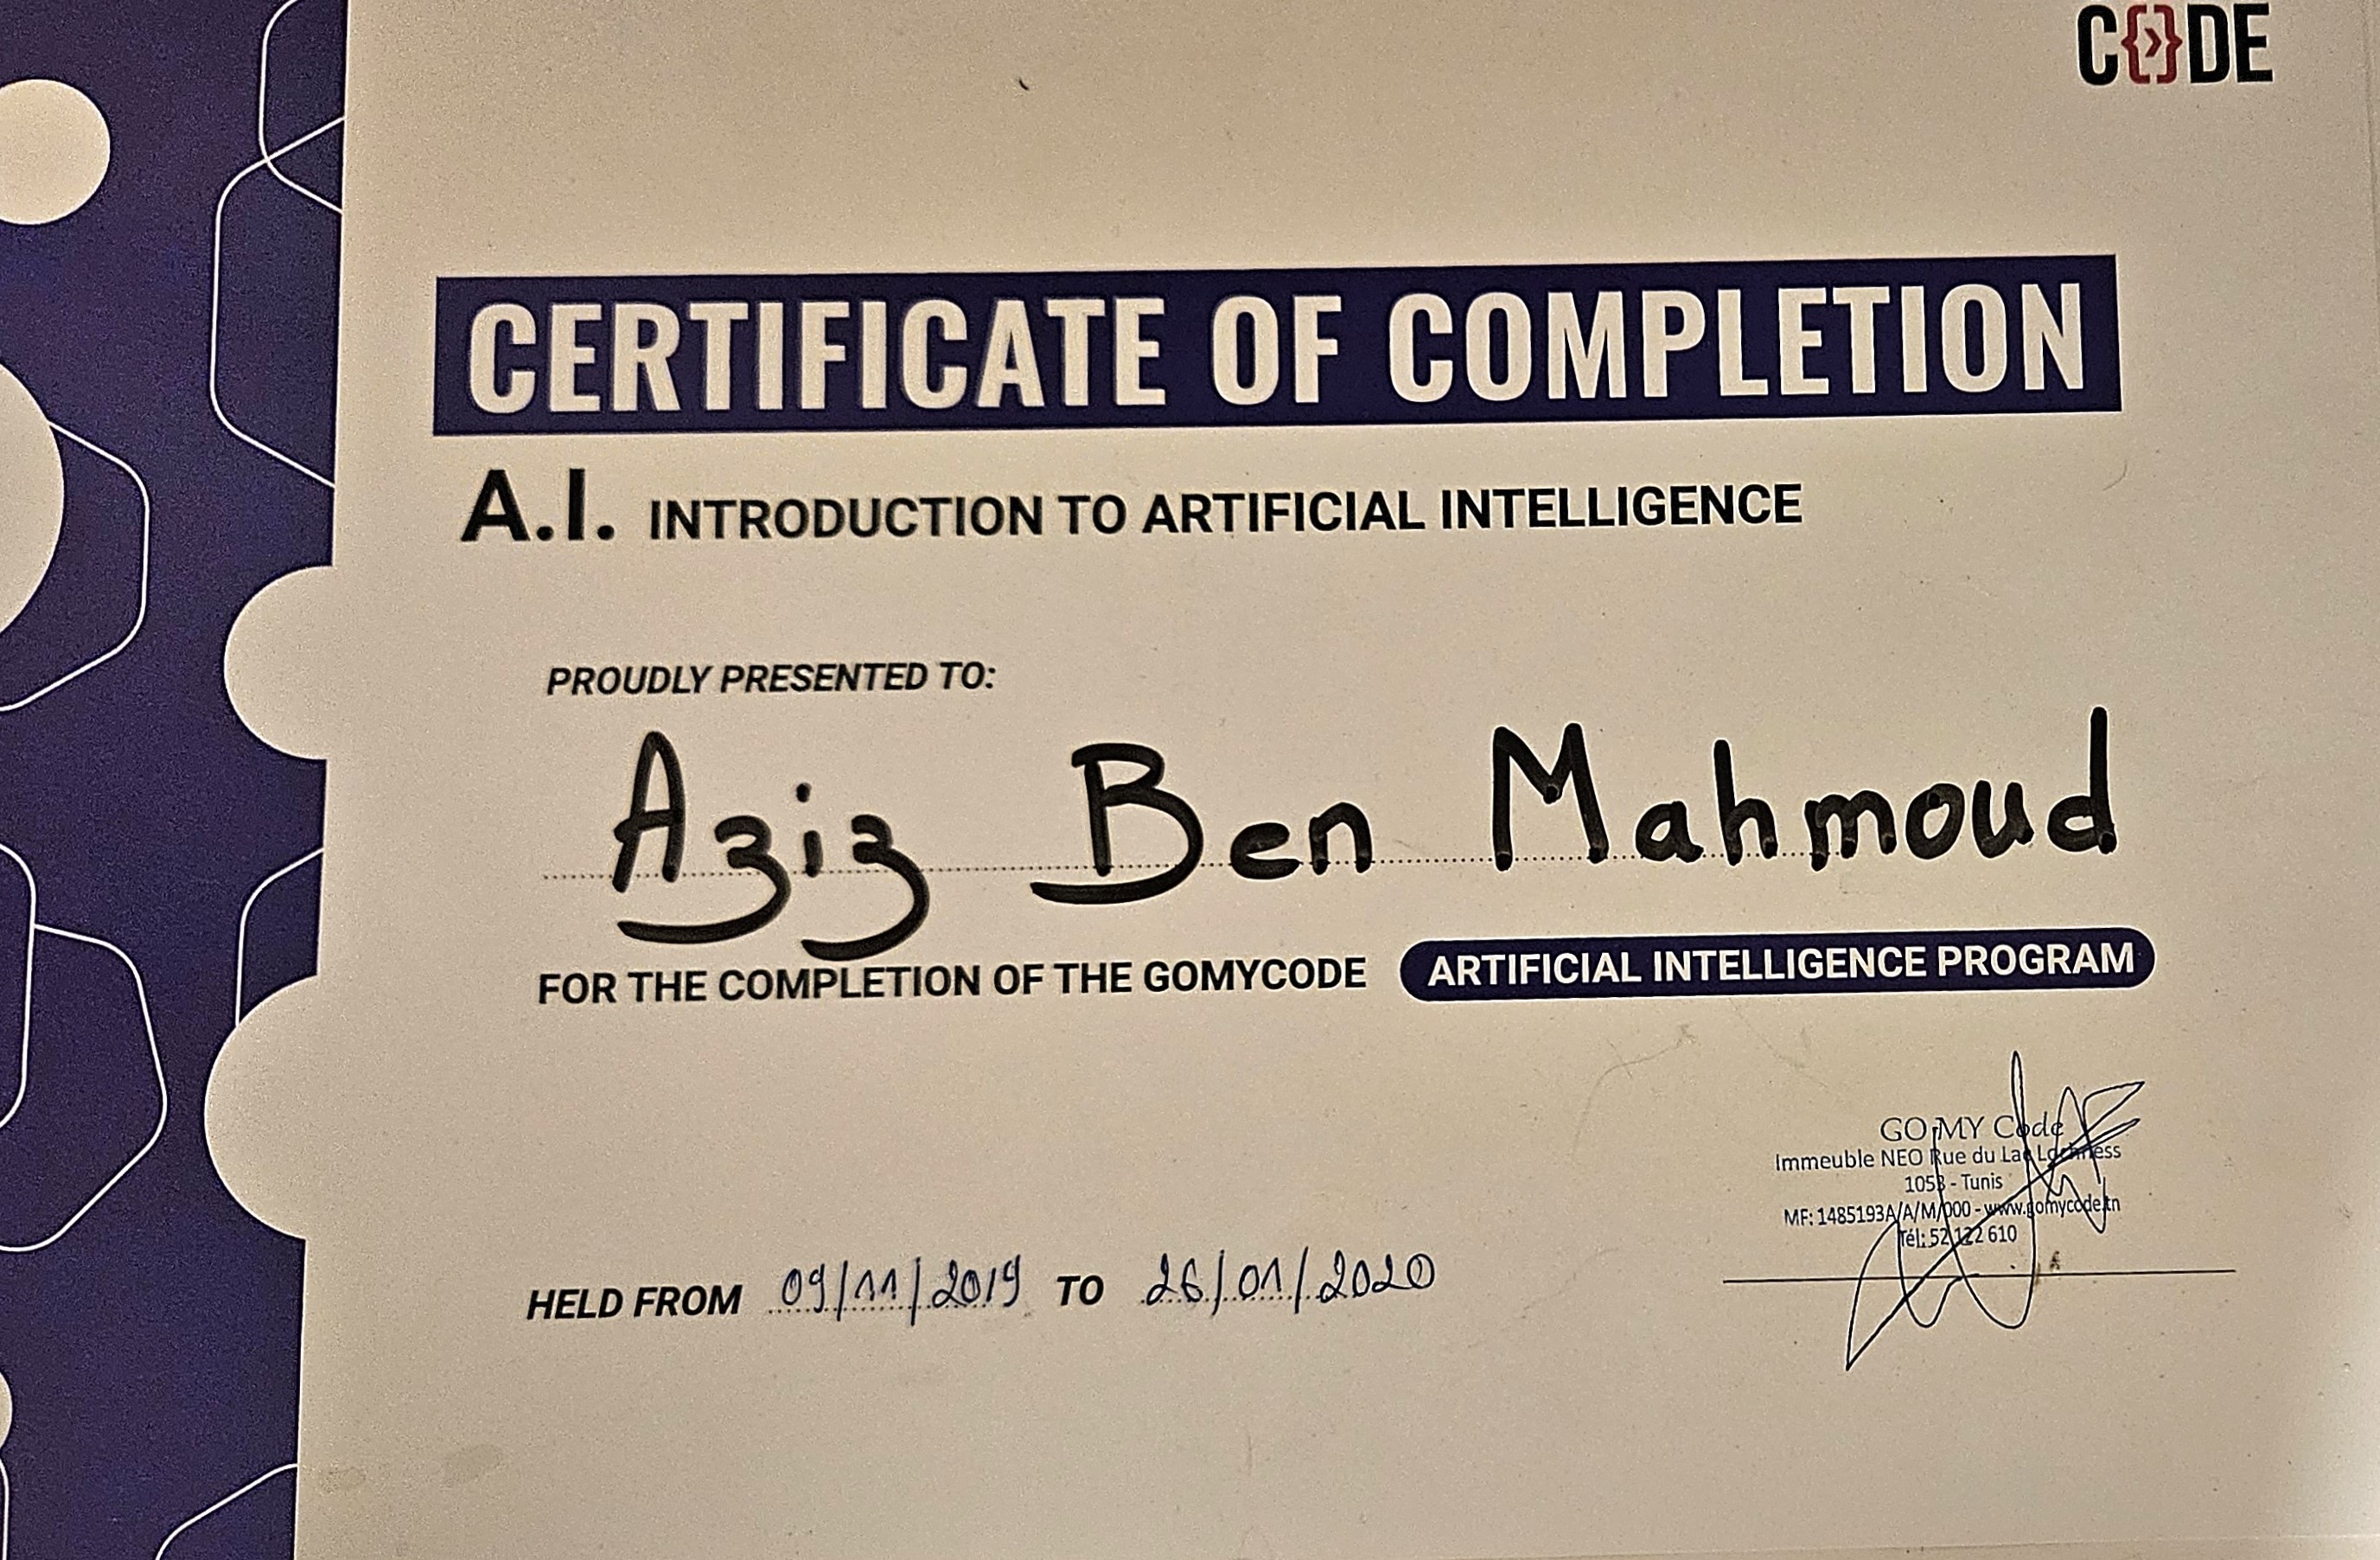 C{›}DE
CERTIFICATE OF COMPLETION
A.I. INTRODUCTION TO ARTIFICIAL INTELLIGENCE
PROUDLY PRESENTED TO:
Aziz Ben Mahmoud
FOR THE COMPLETION OF THE GOMYCODE ARTIFICIAL INTELLIGENCE PROGRAM
GO MY Code
Immeuble NEO Rue du Lac Lochness
1053 - Tunis
MF: 1485193A/A/M/000 - www.gomycode.tn
Tél: 52 122 610
HELD FROM 09/11/2019 TO 26/01/2020